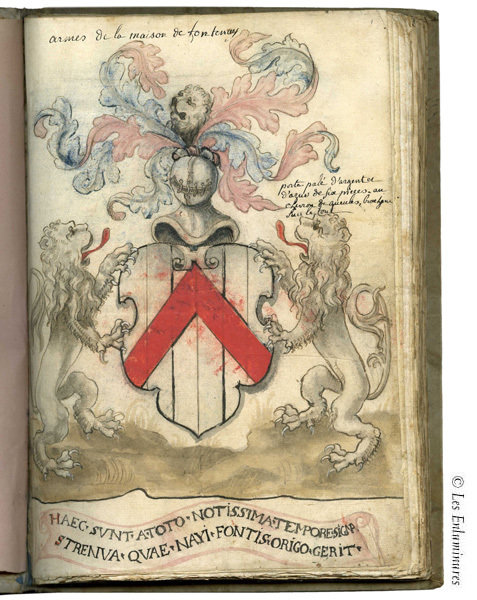 armes de la maison de fontenay
porte palé d'argent et
d'azur de six pieces, au
chevron de gueules, brochant
sur le tout
HAEC · SVNT · A · TOTO · NOTISSIMA · TEMPORE · SIGNA
STRENVA · QVAE · NAYI · FONTIS · ORIGO · GERIT ·
© Les Enluminures